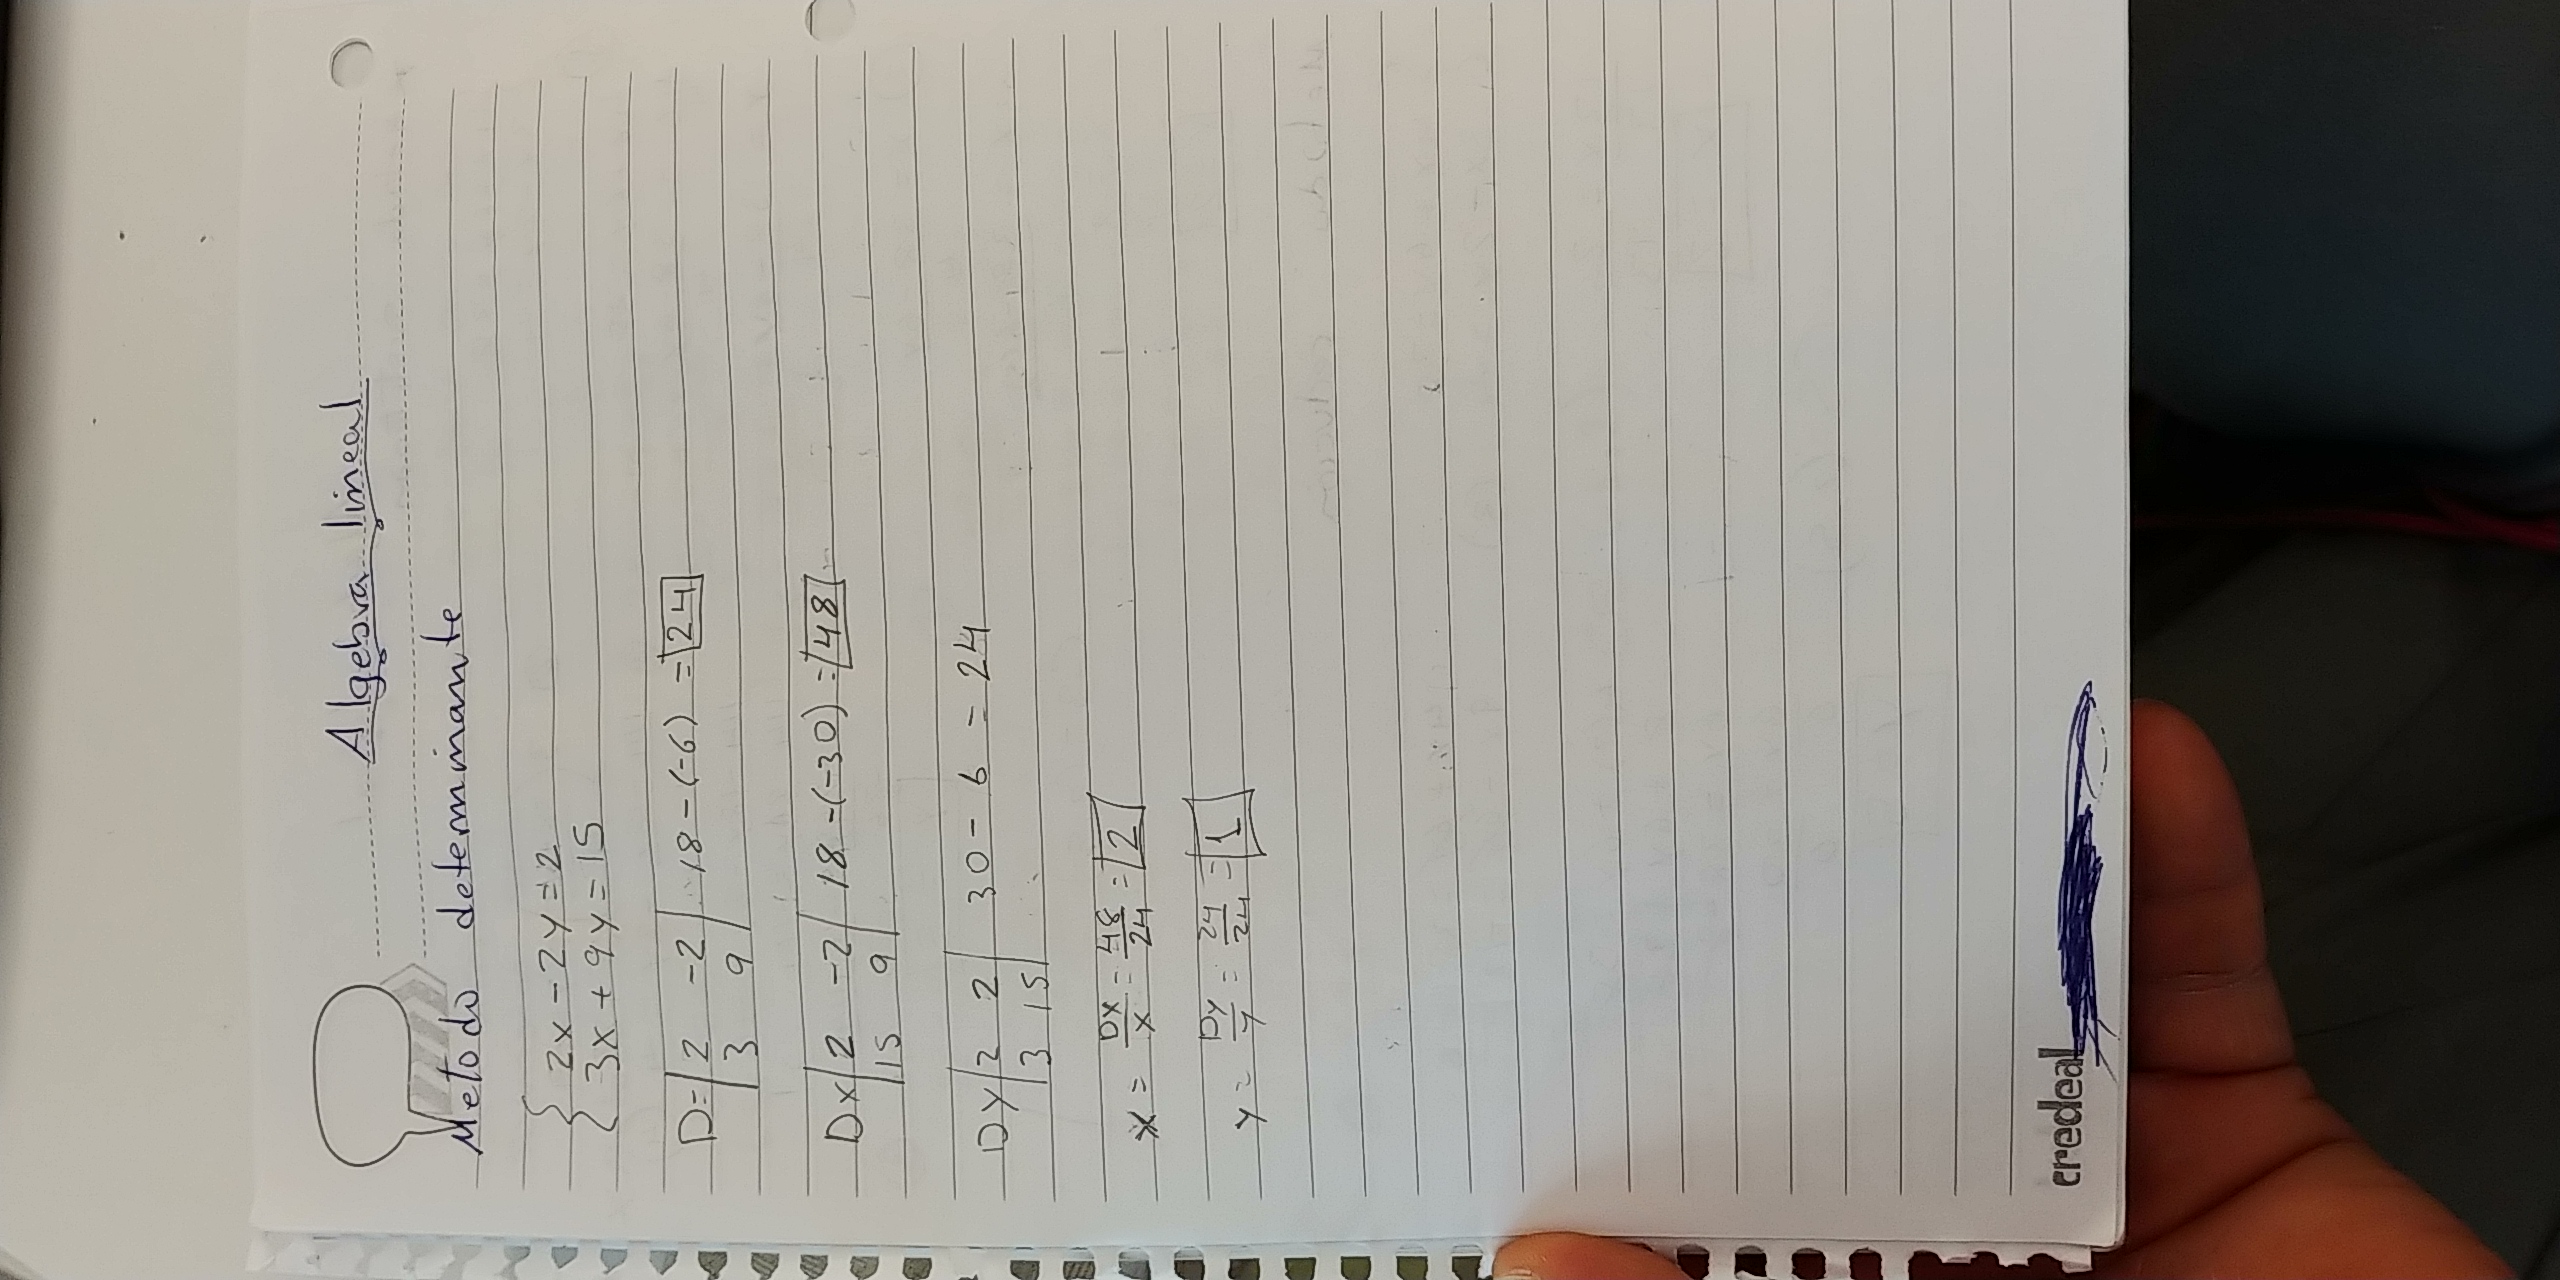 Algebra lineal
Metodo determinante
{ 2x - 2y = 2
3x + 9y = 15
D= | 2 -2 | 18 - (-6) = 24
3 9
Dx | 2 -2 | 18 - (-30) = 48
15 9
Dy | 2 2 | 30 - 6 = 24
3 15
x = Dx/x = 48/24 = 2
y = Dy/y = 24/24 = 1
credeal